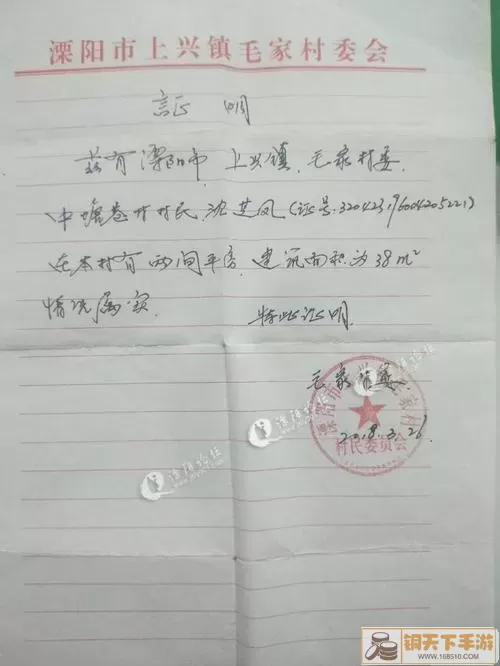 溧阳市上兴镇毛家村委会
证 明
兹有溧阳市 上兴镇 毛家村委
中塘巷村村民 沈芝凤(证号:320423196004205221)
在本村有两间平房,建筑面积为38m²
情况属实 特此证明.
毛家村委.
2018.3.26
村民委员会
溧阳论坛
溧阳论坛
溧阳论坛
铜天下手游
www.168510.com